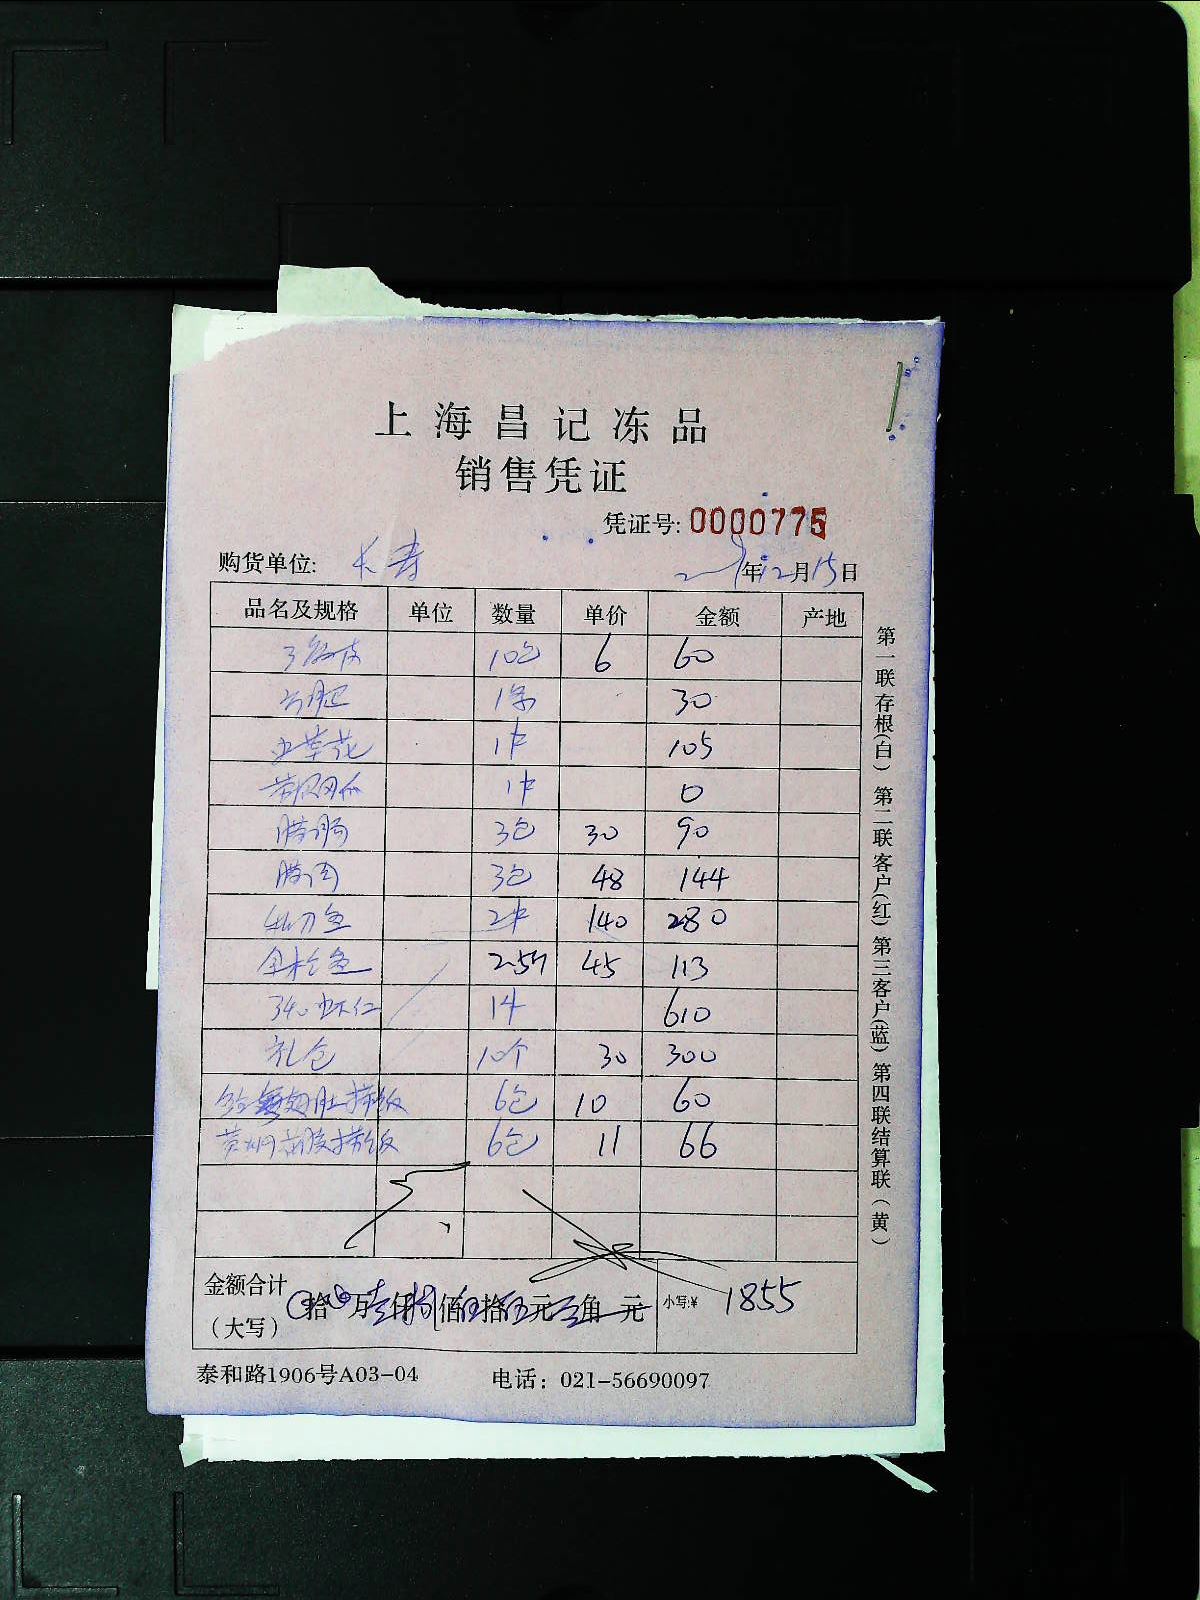 上海昌记冻品
销售凭证
凭证号: 0000775
购货单位: 长寿 年12月15日
品名及规格 单位 数量 单价 金额 产地
10包 6 60
1条 30
1件 105
1件 0
腊肠 3包 30 90
腊肉 3包 48 144
2件 140 280
2.5斤 45 113
340虾仁 1件 610
礼仓 10个 30 300
6包 10 60
6包 11 66
金额合计
(大写) 拾 万 壹仟 捌佰 伍拾 伍元 角 元 小写:¥ 1855
泰和路1906号A03-04 电话: 021-56690097
第一联存根(白) 第二联客户(红) 第三客户(蓝) 第四联结算联(黄)